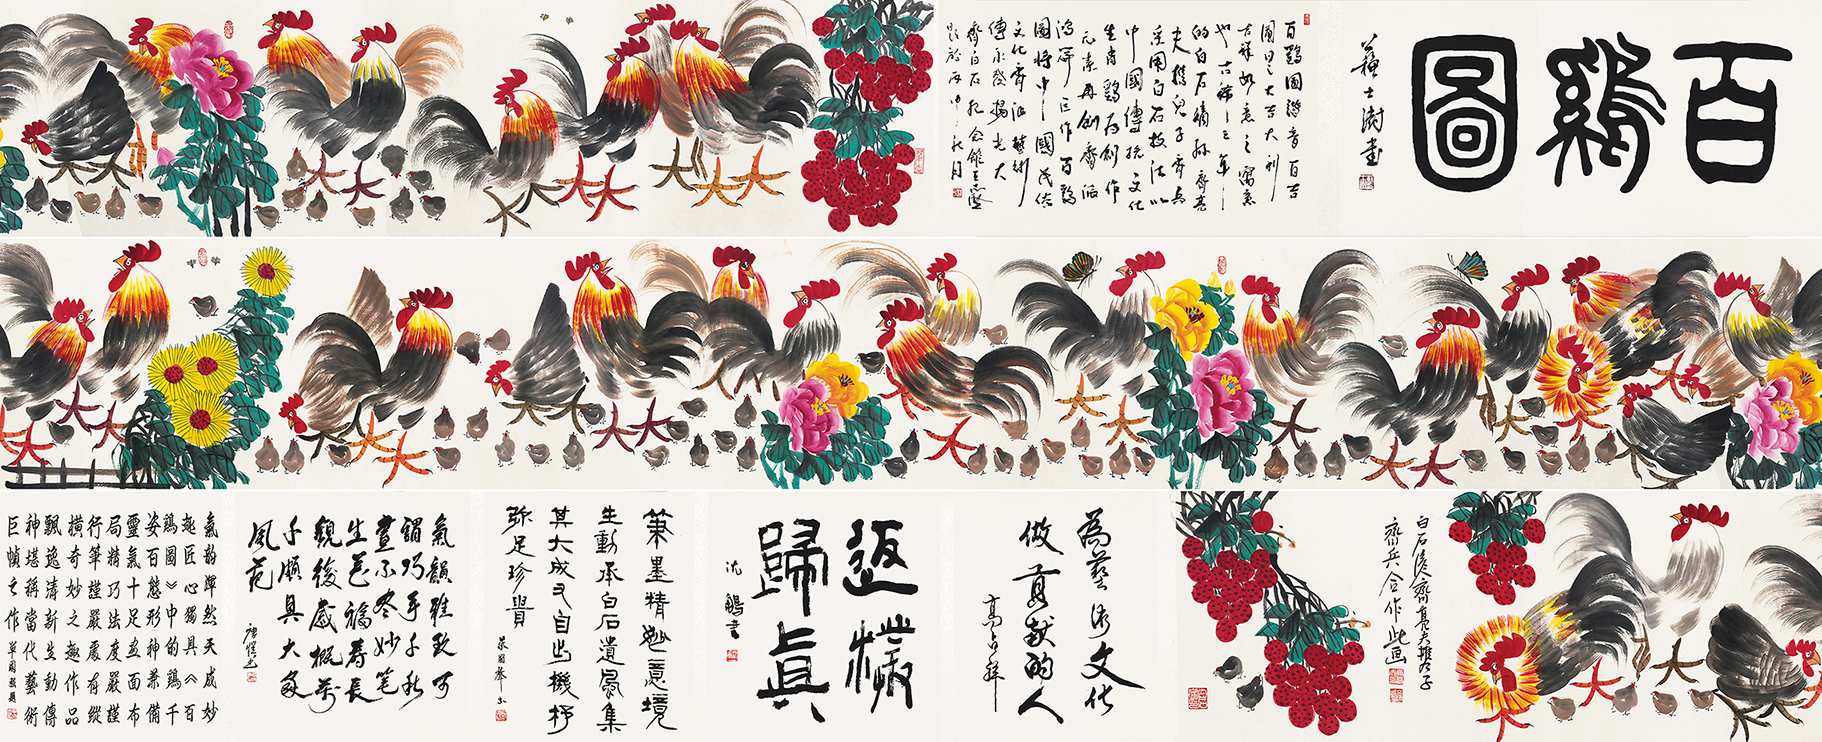 百鷄圖
蘇士澍書
百鷄圖諧音百吉
圖曰之大吉大利
吉祥如意之寓意
也古稀之年
的白石嫡孫齊亮
夫携兒子齊兵
采用白石技法以
中國傳統文化
生肖鷄为創作
元素再創齊派
鴻篇巨作百鷄
圖将中國民俗
文化齊派藝術
傳承發揚光大
齊白石紀念館王志
題於丙申秋月
白石後裔齊亮夫携子
齊兵合作此画
為藝術文化
做貢献的人
高占祥
返樸
歸真
沈鵬書
筆墨精妙意境
生動承白石遺風集
其大成又自出機杼
弥足珍貴
氣韻雅致可
謂巧手千秋
畫不尽妙笔
生花福壽長
觀後感概萬
千頗具大家
風范
氣韵渾然天成妙
趣匠心獨具《百
鷄圖》中的鷄千
姿百態形神兼備
靈氣十足画面布
局精巧法度嚴謹
行筆謹嚴處有縱
橫奇妙之趣作品
飄逸清新生動傳
神堪稱當代藝術
巨幀之作